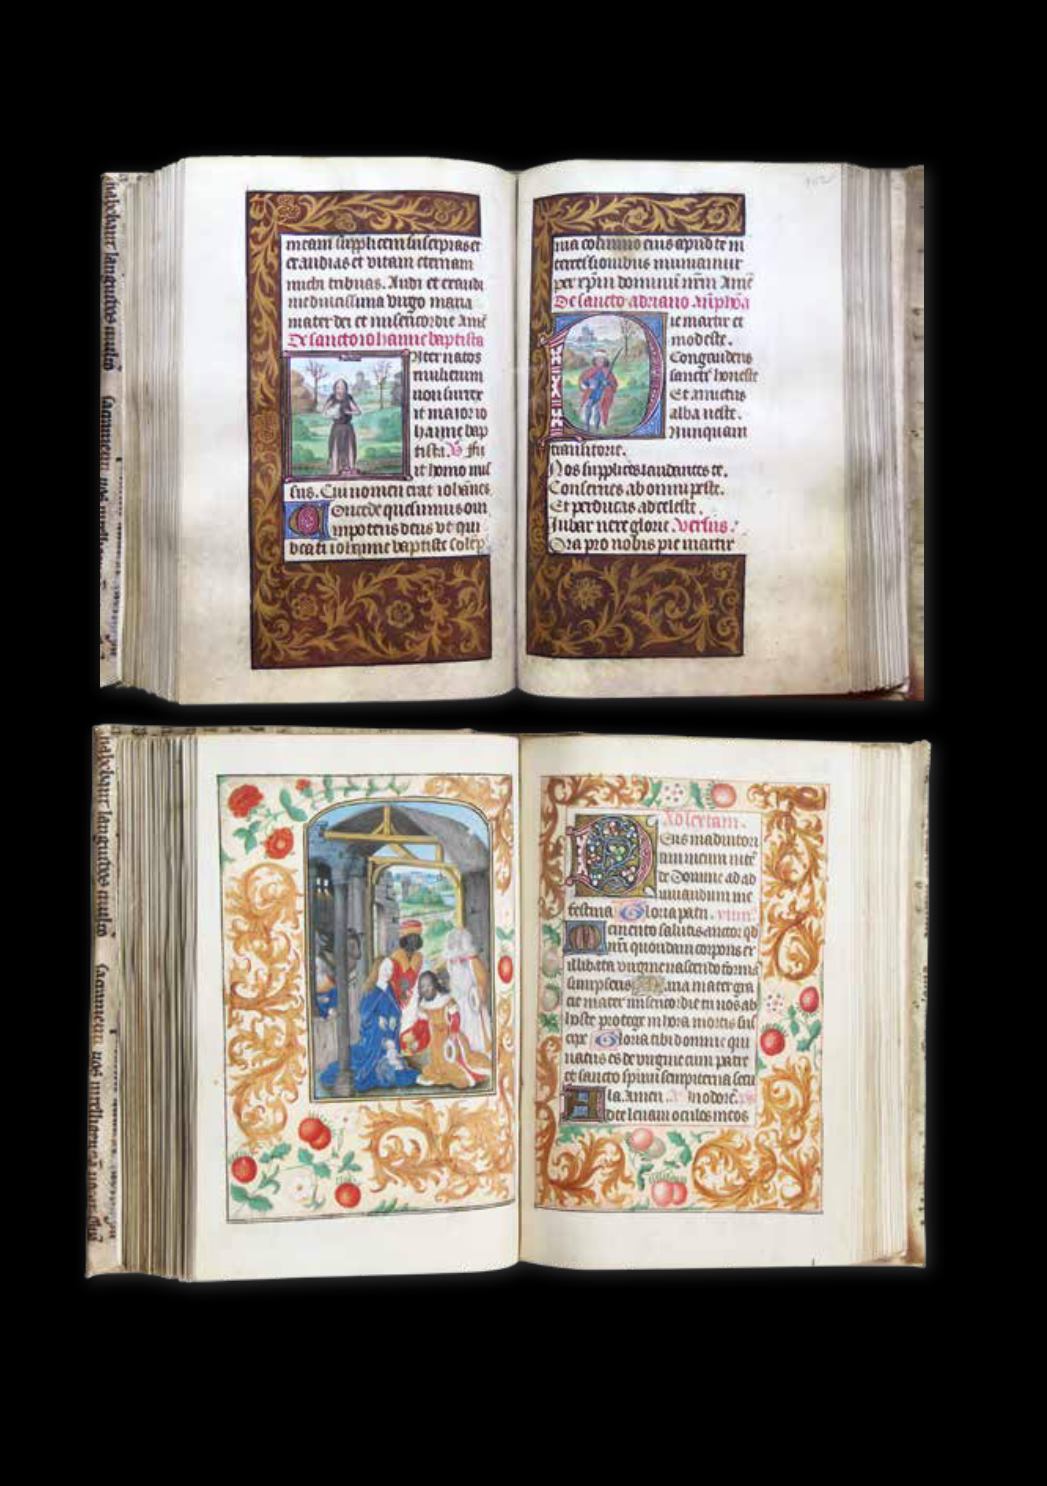 meam supplicem suscipias et
exaudias et vitam eternam
michi tribuas. Audi et exaudi
me dulcissima virgo maria
mater dei et misericordie Amē
De sancto iohanne baptista
Nter natos
mulierum
non surrex
it maior io
hanne bap
tista. V Fu
it homo mis
sus. Cui nomen erat iohānes
Oncede quesumus om
nipotens deus vt qui
beati iohanne baptiste solēp
162
nia colimus eius apud te in
tercessionibus muniamur
per xpm̄ dominū nr̄m Amē
De sancto adriano Añpho̅a
ie martir et
modeste.
Congaudens
sanct̄ honeste
Et amictus
alba veste.
Nunquam
transitorie.
Nos supplices laudantes te.
Conserues ab omni peste.
Et perducas ad celeste.
Iubar vere glorie. Versus.
Ora pro nobis pie martir
Ad sextam.
Eus in adiutori
um meum intē
de Domine ad ad
iuuandum me
festina Gloria patri.
M emento salutis auctor qd
nr̄i quondam corporis ex
illibata virgine nascendo formā
sumpseris Maria mater gra
cie mater misericordie tu nos ab
hoste protege in hora mortis sus
cipe Gloria tibi domine qui
natus es de virgine cum patre
et sancto spiritū sempiterna secu
la. Amen. In odorē. ps
Ad te leuaui oculos meos